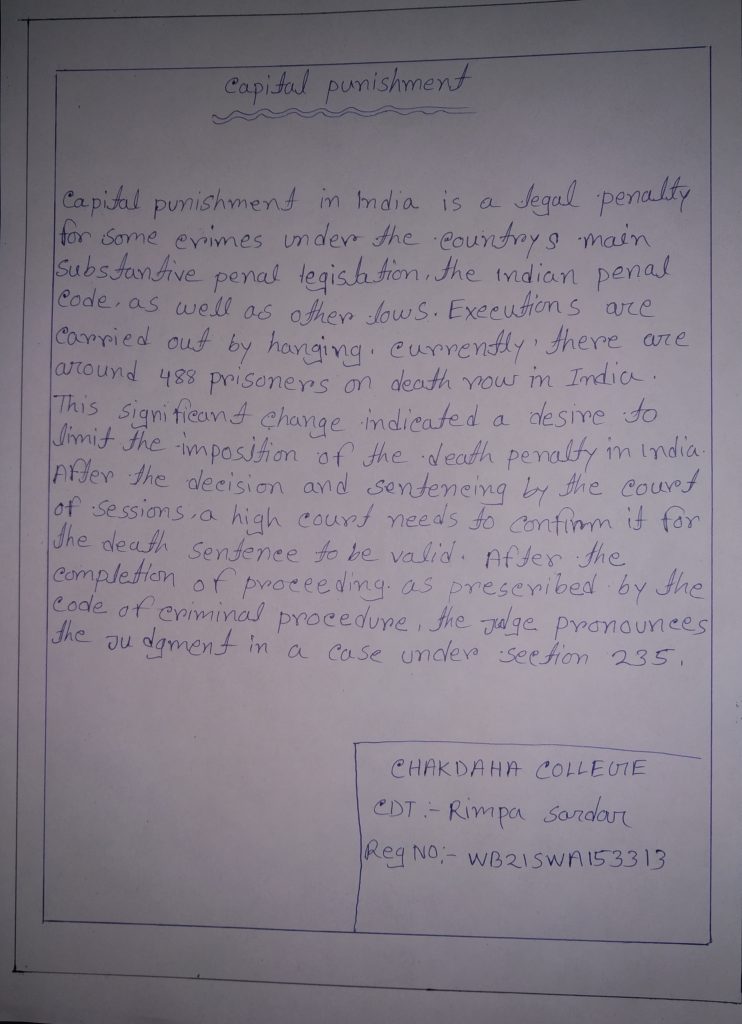 Capital punishment
Capital punishment in India is a legal penalty
for some crimes under the countrys main
substantive penal legislation, the indian penal
Code, as well as other lows. Executions are
Carried out by hanging. currently, there are
around 488 prisoners on death row in India.
This significant change indicated a desire to
limit the imposition of the death penalty in india.
After the decision and sentencing by the court
of sessions, a high court needs to confirm it for
the death sentence to be valid. After the
completion of proceeding. as prescribed by the
code of criminal procedure, the judge pronounces
the judgment in a case under section 235.
CHAKDAHA COLLEGE
CDT :- Rimpa Sardar
Reg NO:- WB21SWA153313